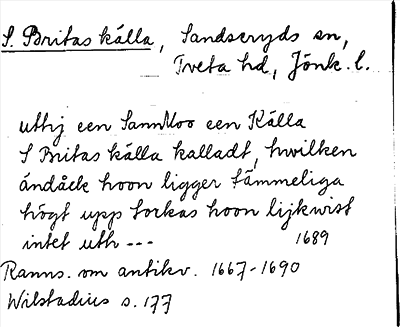 S. Britas källa, Sandseryds sn,
Tveta hd, Jönk. l.
uthj een Sannmoo een Källa
S Britas källa kalladt, hwilken
ändåck hoon ligger tämmeliga
högt upp torkas hoon lijkwist
intet uth ---
1689
Ranns. om antikv. 1667-1690
Wilstadius s. 177